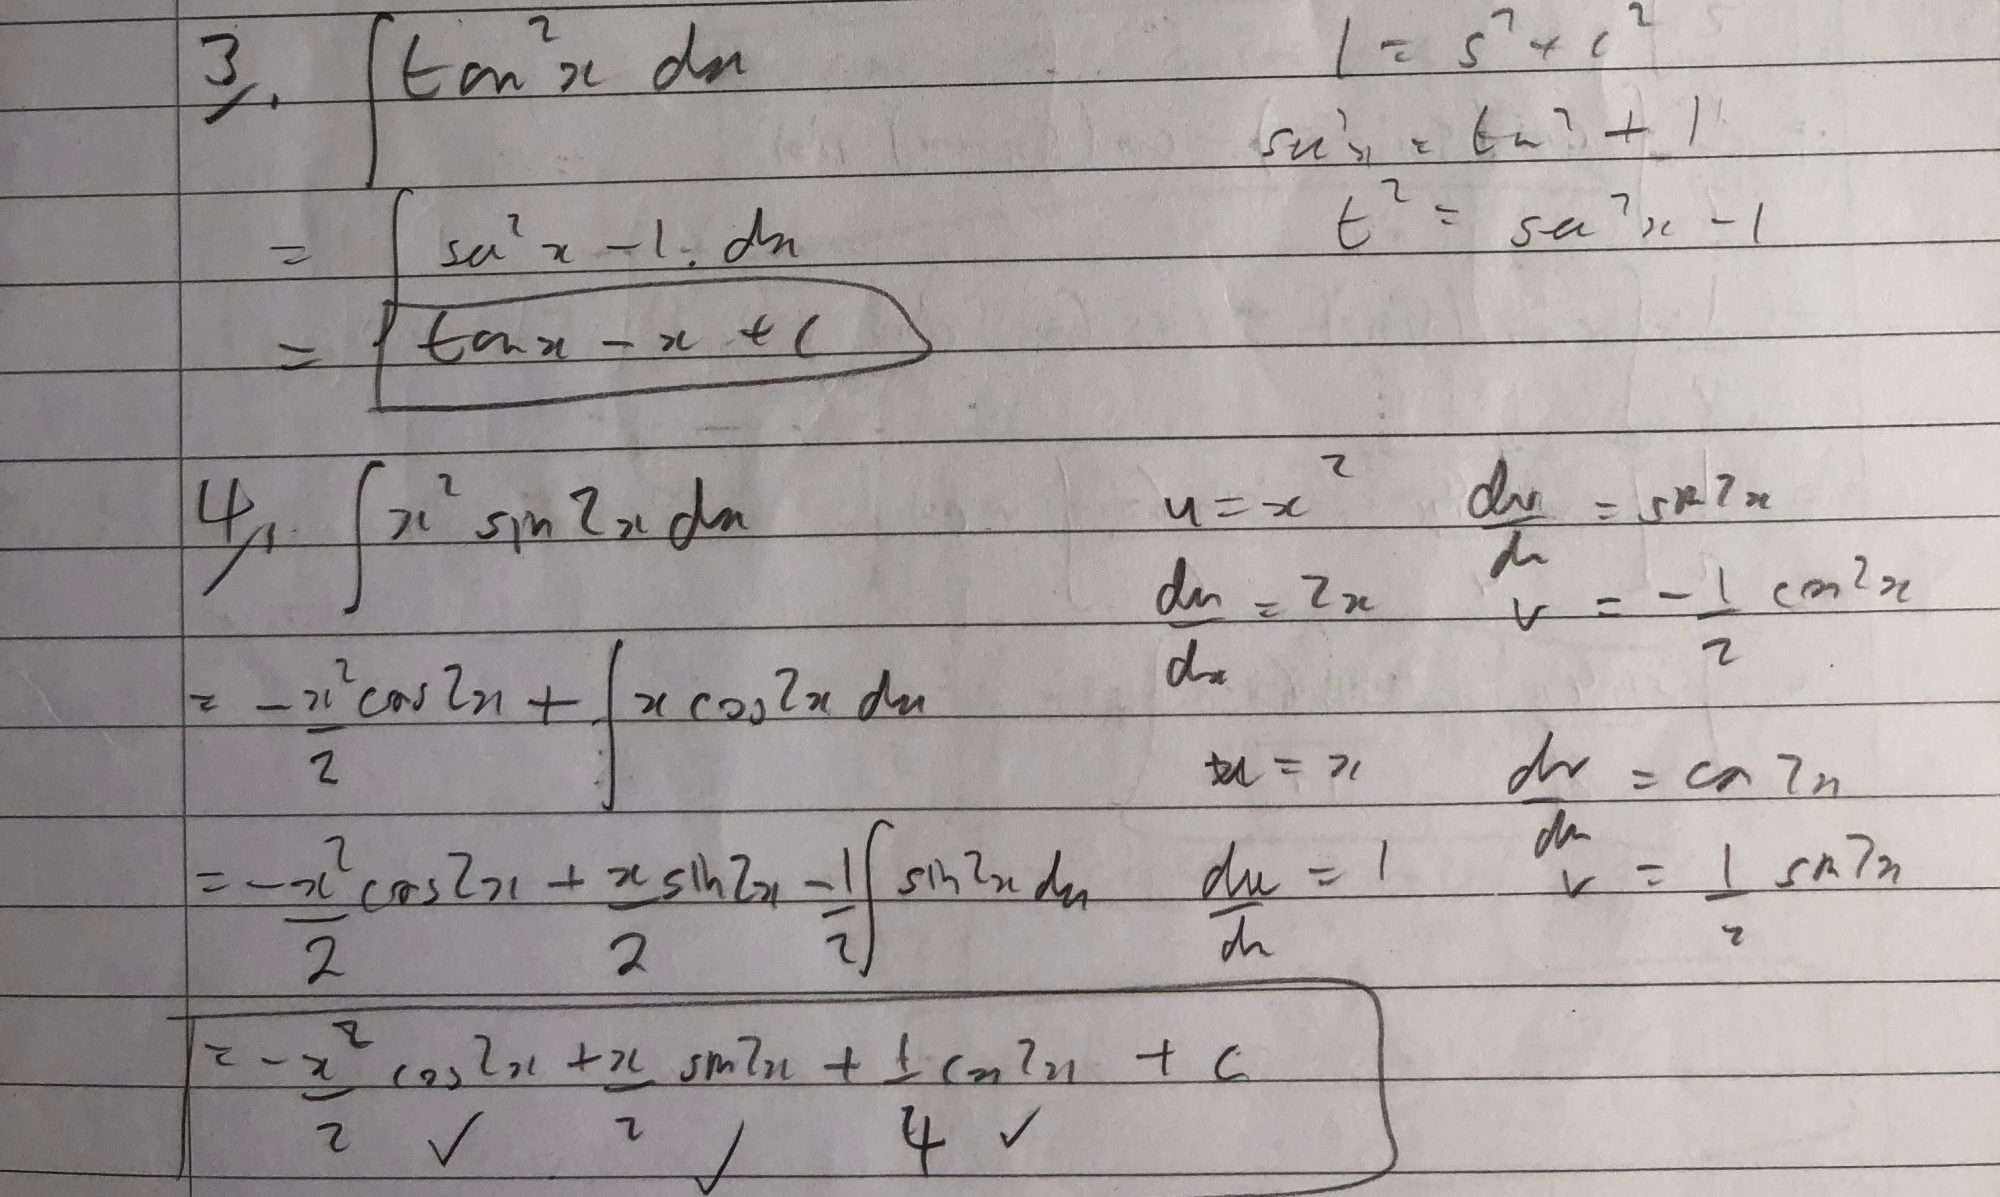 3. ∫ tan²x dx
1 = s² + c²
sec²x = tan² + 1
t² = sec²x - 1
= ∫ sec²x - 1. dx
= tan x - x + c
4. ∫ x² sin 2x dx
u = x²   dv/dx = sin 2x
du/dx = 2x   v = -1/2 cos 2x
= -x²/2 cos 2x + ∫ x cos 2x dx
u = x   dv/dx = cos 2x
= -x²/2 cos 2x + x/2 sin 2x - 1/2 ∫ sin 2x dx
du/dx = 1   v = 1/2 sin 2x
= -x²/2 cos 2x + x/2 sin 2x + 1/4 cos 2x + c
✓ ✓ ✓